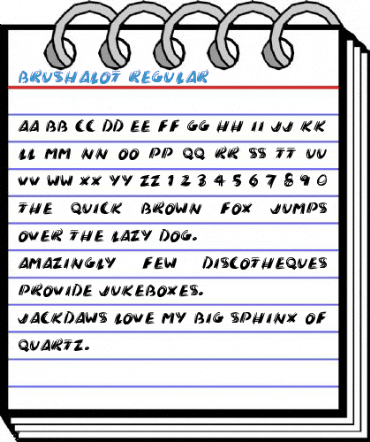 BRUSHALOT REGULAR
AA BB CC DD EE FF GG HH II JJ KK
LL MM NN OO PP QQ RR SS TT UU
VV WW XX YY ZZ 1 2 3 4 5 6 7 8 9 0
THE QUICK BROWN FOX JUMPS
OVER THE LAZY DOG.
AMAZINGLY FEW DISCOTHEQUES
PROVIDE JUKEBOXES.
JACKDAWS LOVE MY BIG SPHINX OF
QUARTZ.